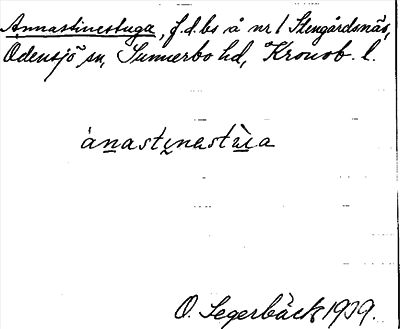 Annastinestuga, f.d. bs å nr 1 Stengårdsnäs,
Odensjö sn, Sunnerbo hd, Kronob. l.
ànastɩnastù̀ɩa
O. Segerbäck 1939.